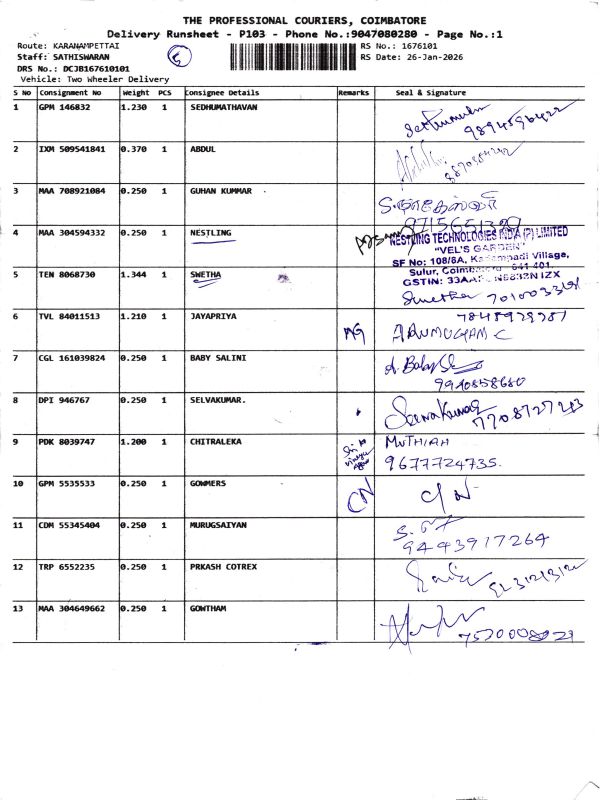 THE PROFESSIONAL COURIERS, COIMBATORE
Delivery Runsheet - P103 - Phone No.:9047080280 - Page No.:1
Route: KARANAMPETTAI
Staff: SATHISWARAN
DRS No.: DCJB167610101
Vehicle: Two Wheeler Delivery
5
RS No.: 1676101
RS Date: 26-Jan-2026
S No Consignment No Weight PCS Consignee Details Remarks Seal & Signature
1 GPM 146832 1.230 1 SEDHUMATHAVAN
9894596422
2 IXM 509541841 0.370 1 ABDUL
3 MAA 708921084 0.250 1 GUHAN KUMMAR
4 MAA 304594332 0.250 1 NESTLING
NESTLING TECHNOLOGIES INDIA (P) LIMITED
"VEL'S GARDEN"
SF No: 108/8A, Kadampadi Village,
Sulur, Coimbatore - 641 401.
5 TEN 8068730 1.344 1 SWETHA
Swetha
6 TVL 84011513 1.210 1 JAYAPRIYA
7848929787
ARUMUGAM C
7 CGL 161039824 0.250 1 BABY SALINI
9940858680
8 DPI 946767 0.250 1 SELVAKUMAR.
9 PDK 8039747 1.200 1 CHITRALEKA MUTHIAH
9677724735.
10 GPM 5535533 0.250 1 GOWMERS CN C/N
11 CDM 55345404 0.250 1 MURUGSAIYAN
9443917264
12 TRP 6552235 0.250 1 PRKASH COTREX
13 MAA 304649662 0.250 1 GOWTHAM